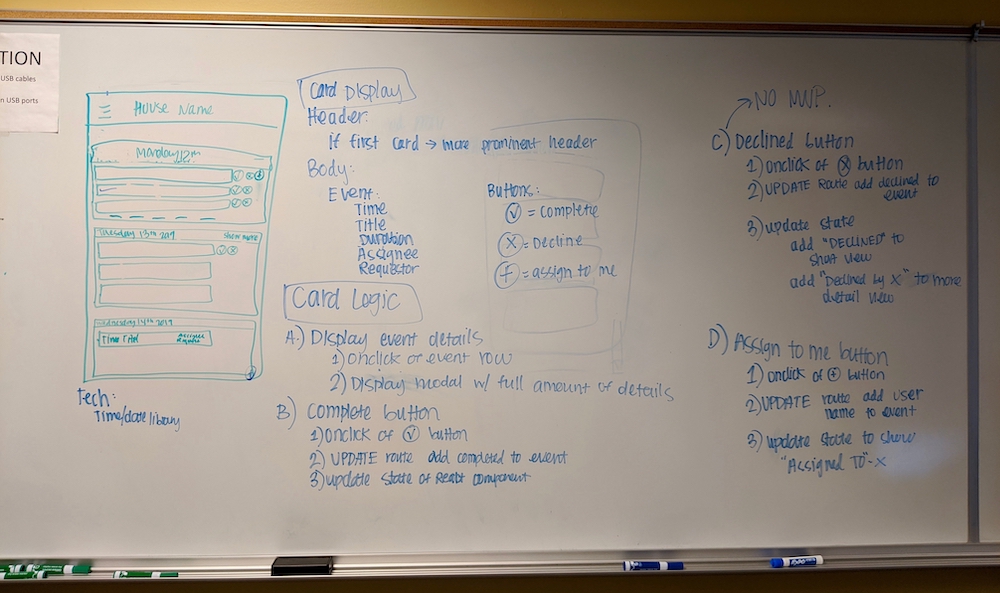 TION
USB cables
n USB ports
House Name
Monday 12th
Tuesday 13th 2019
Show more
Wednesday 14th 2019
Time Title
Assignee
Tech:
Time/date library
Card Display
Header:
If first card → more prominent header
Body:
Event:
Time
Title
Duration
Assignee
Requestor
Buttons:
✓ = complete
X = Decline
+ = assign to me
Card Logic
A.) Display event details
1) Onclick of event row
2) Display modal w/ full amount of details
B) Complete button
1) Onclick of ✓ button
2) UPDATE route add completed to event
3) update state of React component
→ NO MVP.
C) Declined button
1) Onclick of X button
2) UPDATE Route add declined to
event
3) update state
add "DECLINED" to
short view
add "Declined by X" to more
detail view
D) Assign to me button
1) onclick of + button
2) UPDATE route add user
name to event
3) update state to show
"Assigned TO" - X